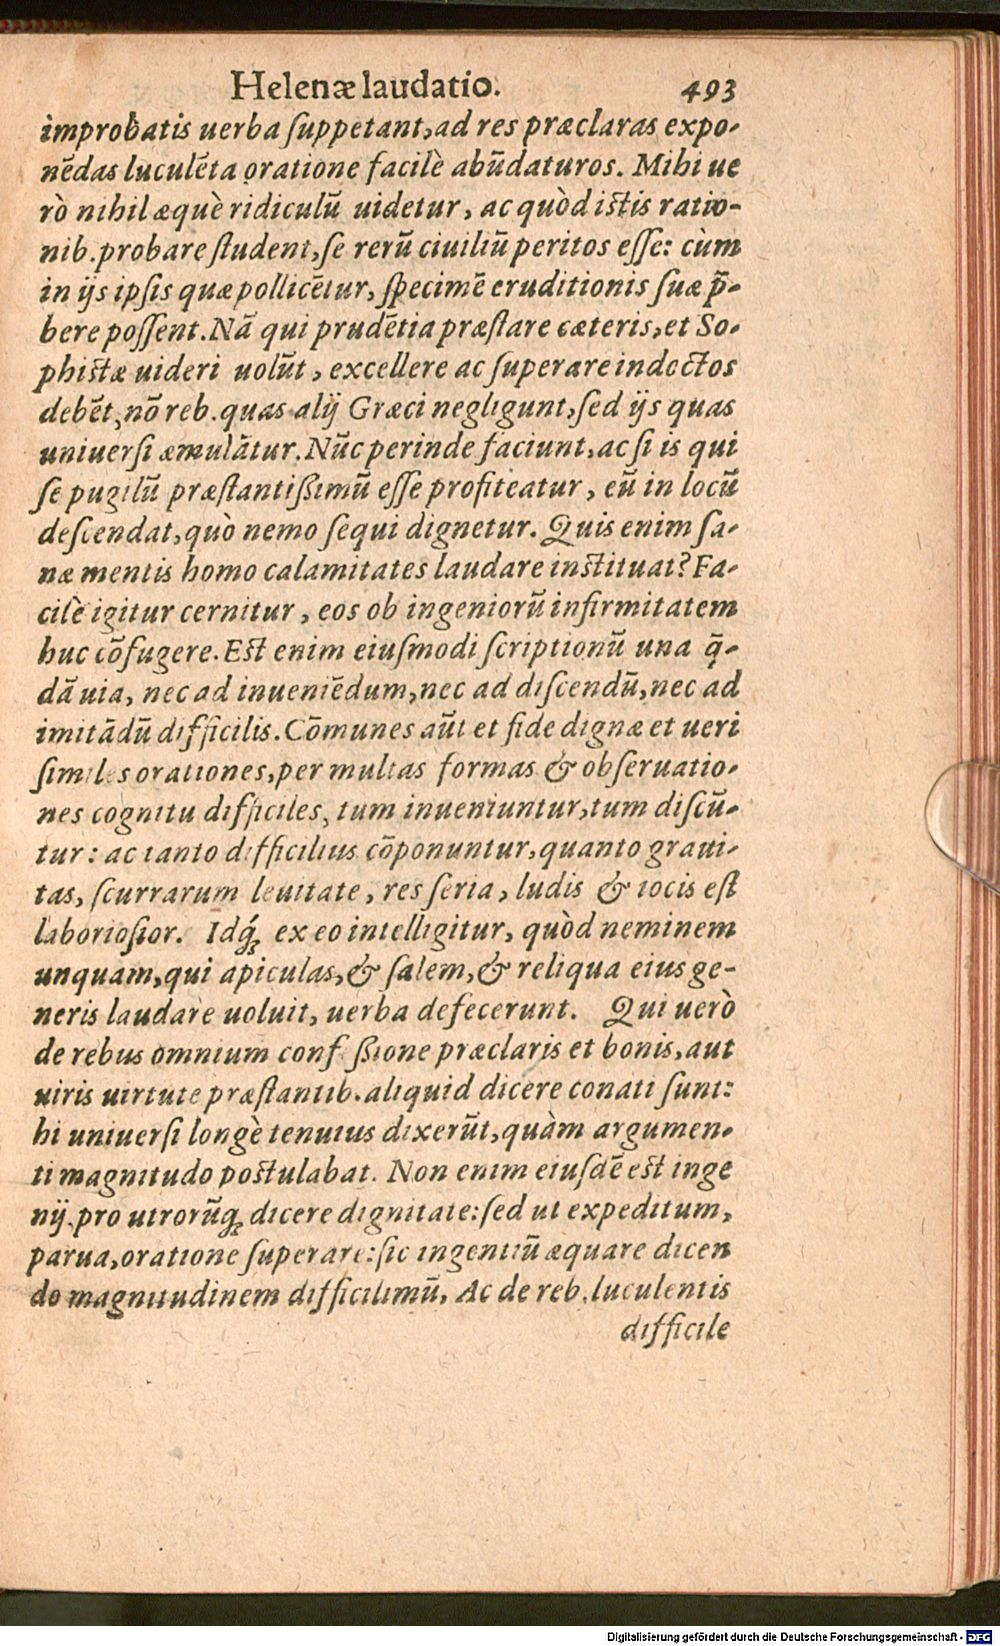 Helenæ laudatio. 493
improbatis uerba ſuppetant, ad res præclaras expo-
nēdas luculēta oratione facilè abūdaturos. Mihi ue
rò nihil æquè ridiculū uidetur, ac quòd istis ratio-
nib. probare ſtudent, ſe rerū ciuiliū peritos eſſe: cùm
in ijs ipſis quæ pollicētur, ſpecimē eruditionis ſuæ p̄-
bere poſſent. Nā qui prudētia præſtare cæteris, et So-
phistæ uideri uolūt, excellere ac ſuperare indoctos
debēt, nō reb. quas alij Græci negligunt, ſed ijs quas
uniuerſi æmulātur. Nūc perinde faciunt, ac ſi is qui
ſe pugilū præſtantißimū eſſe profiteatur, eū in locū
deſcendat, quò nemo ſequi dignetur. Quis enim ſa-
næ mentis homo calamitates laudare instituat? Fa-
cilè igitur cernitur, eos ob ingeniorū infirmitatem
huc cōfugere. Est enim eiuſmodi ſcriptionū una q̄-
dā uia, nec ad inueniēdum, nec ad diſcendū, nec ad
imitādū difficilis. Cōmunes aūt et fide dignæ et ueri
ſimiles orationes, per multas formas & obſeruatio-
nes cognitu difficiles, tum inueniuntur, tum diſcū-
tur: ac tanto difficilius cōponuntur, quanto graui-
tas, ſcurrarum leuitate, res ſeria, ludis & iocis eſt
laborioſior. Idq́ꝫ ex eo intelligitur, quòd neminem
unquam, qui apiculas, & ſalem, & reliqua eius ge-
neris laudare uoluit, uerba defecerunt. Qui uerò
de rebus omnium confeſßione præclaris et bonis, aut
uiris uirtute præſtantib. aliquid dicere conati ſunt:
hi uniuerſi longè tenuius dixerūt, quàm argumen-
ti magnitudo postulabat. Non enim eiuſdē est inge
nij, pro utrorūqꝫ dicere dignitate: ſed ut expeditum,
parua, oratione ſuperare: ſic ingentiū æquare dicen
do magnitudinem difficilimū. Ac de reb. luculentis
difficile
Digitalisierung gefördert durch die Deutsche Forschungsgemeinschaft - DFG